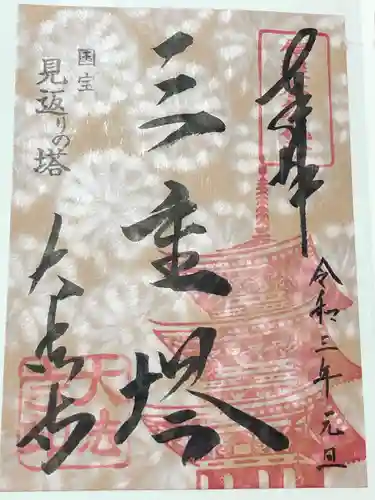 奉拝
令和三年元旦
三重塔
国宝
見返りの塔
大法寺